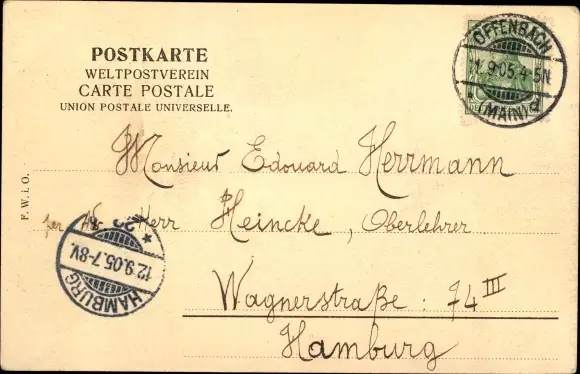 POSTKARTE
WELTPOSTVEREIN
CARTE POSTALE
UNION POSTALE UNIVERSELLE.
OFFENBACH
9.05.4-5N.
(MAIN)
F. W. i. O.
Monsieur Edouard Herrmann
per Herr Heincke, Oberlehrer
Wagnerstraße : 74 III
Hamburg
HAMBURG
12.9.05.7-8V.